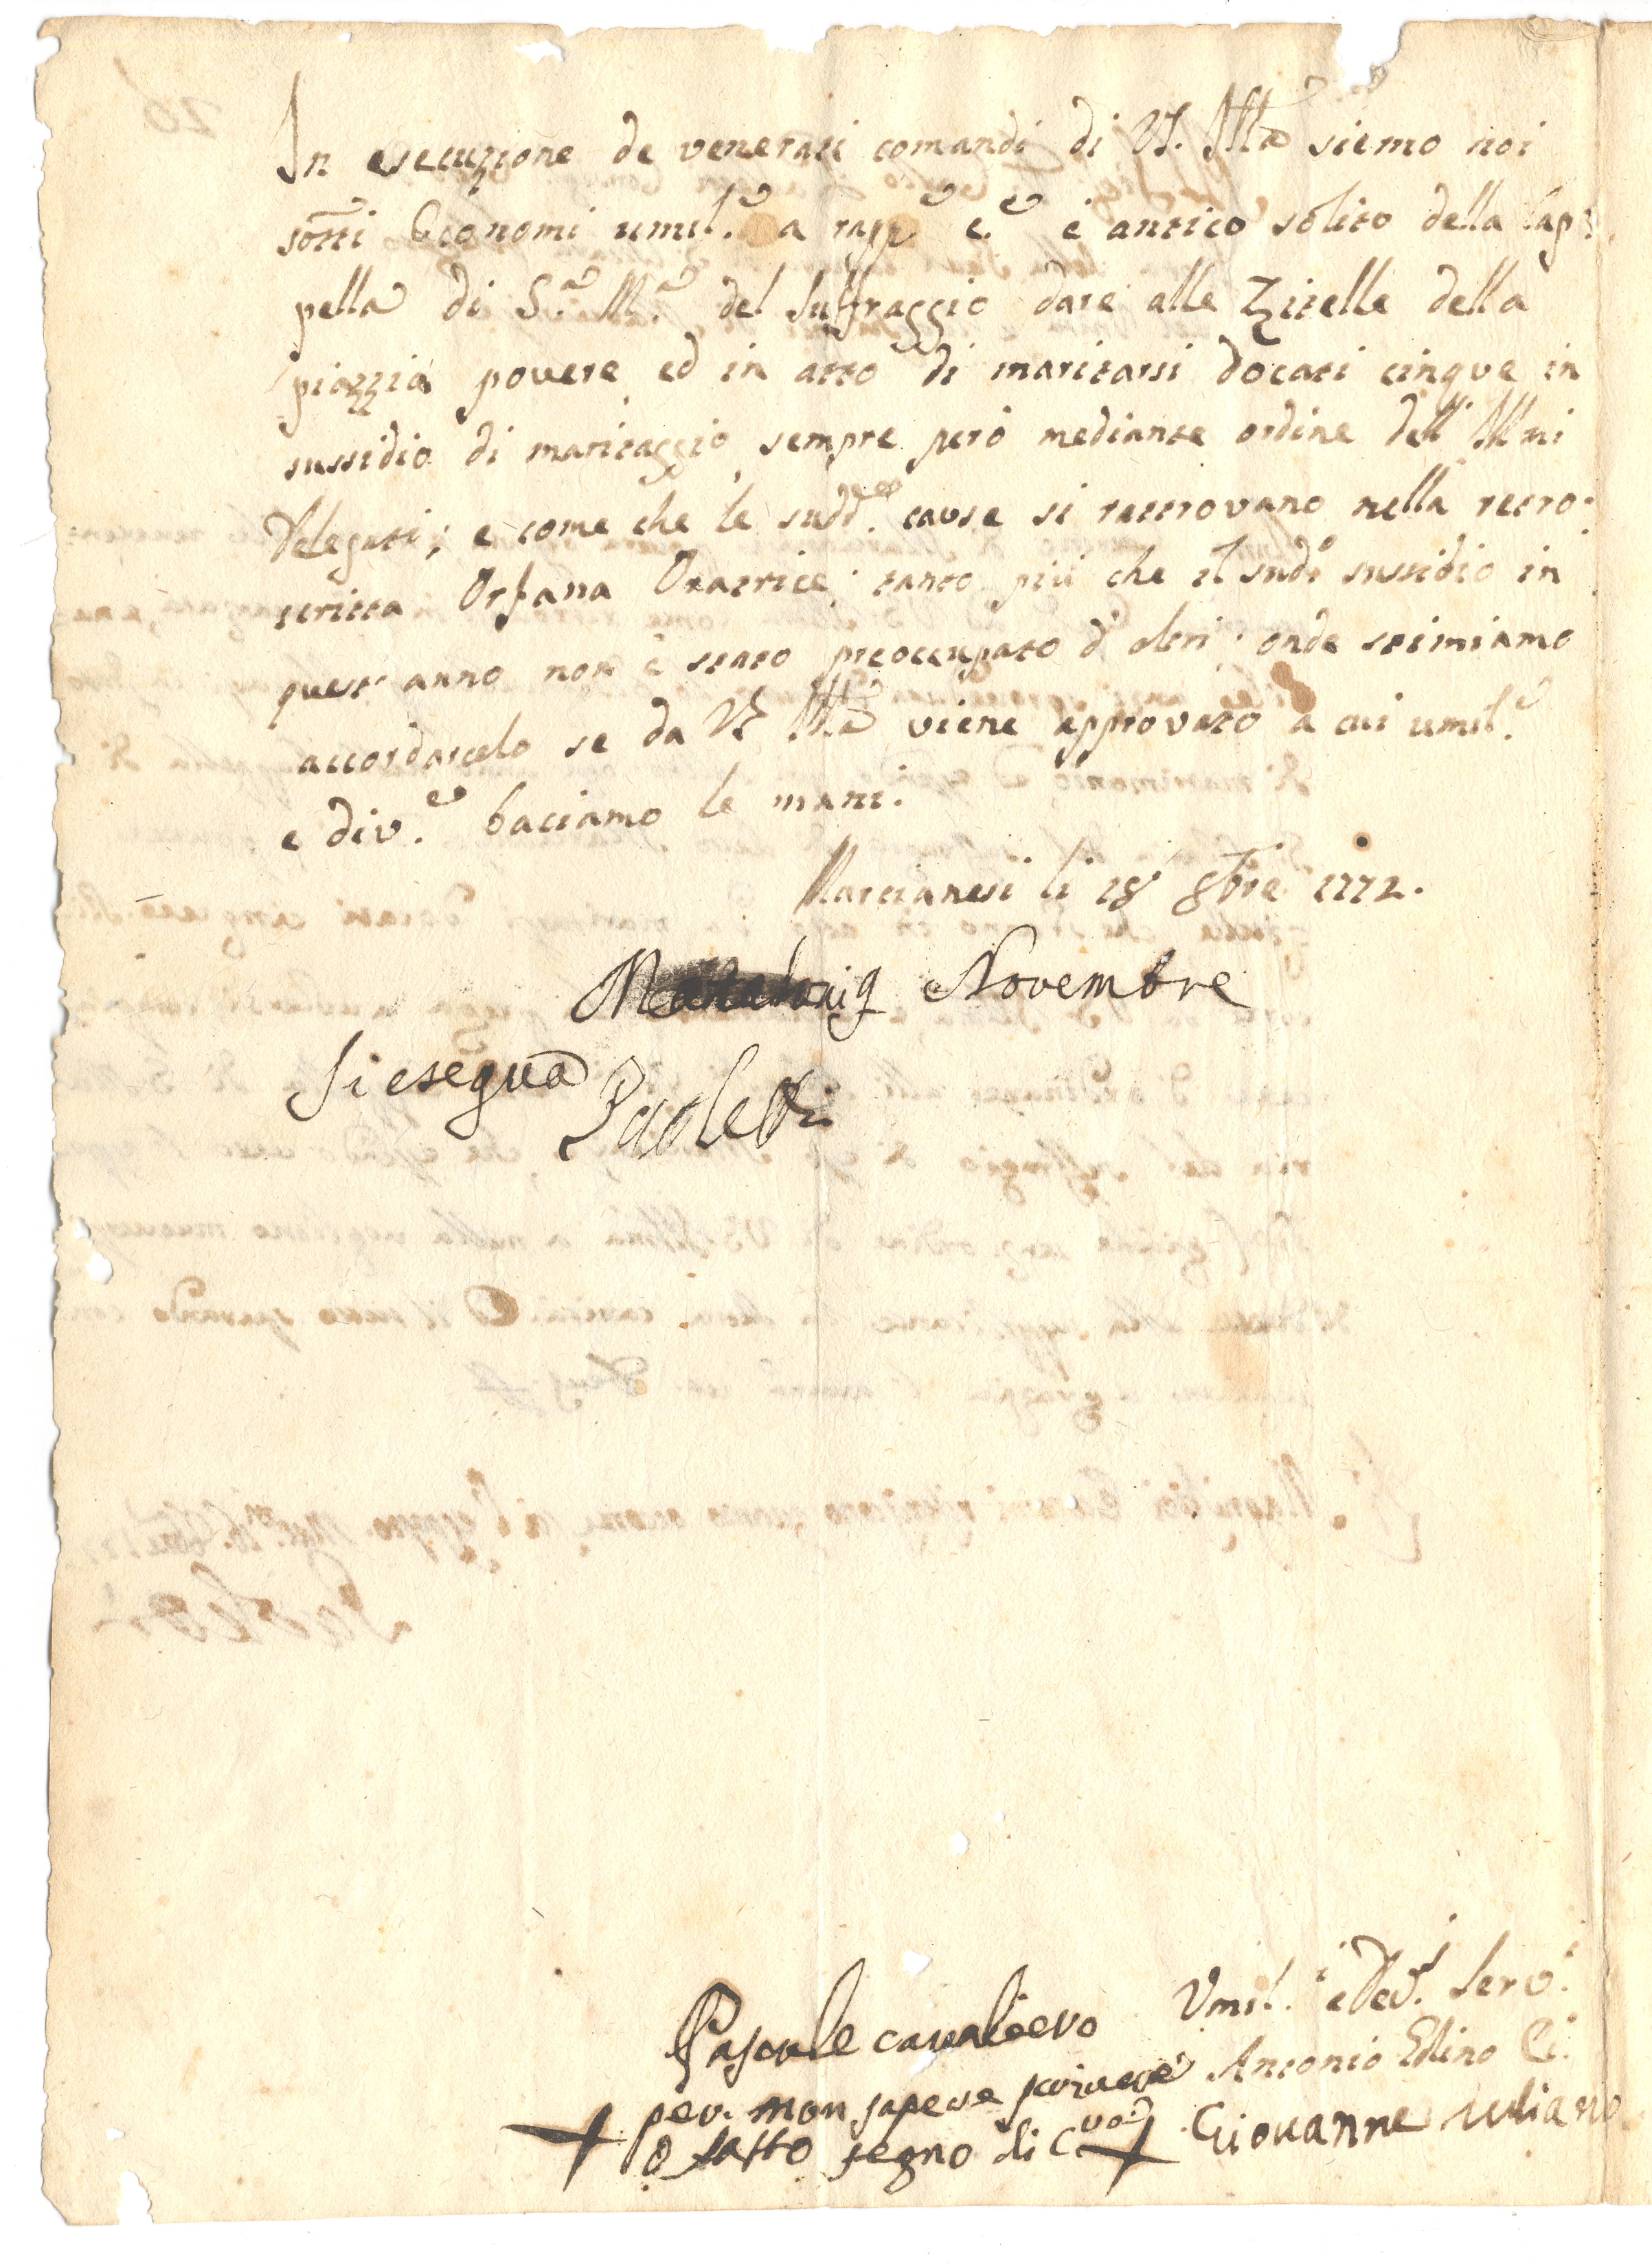 In esecuzione de venerati comandi di VS. Ill.ma siemo noi
sotti Economi umil.e a rapp.e c.e è antico solito della Cap:
pella di S.a M.a del Suffraggio dare alle Zitelle della
piazzia povere ed in atto di maritarsi docati cinque in
sussidio di maritaggio sempre però mediante ordine dell' Ill.mi
Delegati; e come che le sudd.e cause si retrovano nella retro:
scritta Orfana Oratrice; tanto più che il sud.o sussidio in
quest' anno non è stato preoccupato d' altri; onde stimiamo
accordarcelo se da VS Ill.ma viene approvato a cui umil.e
e div.e baciamo le mani.
Marcianesi li 18 8bre 1772.
Novembre
Si esegua
Paoletti
Umil.i e Dev.i Serv.i
Pascale cavaliero
Antonio Edino
per non sapere scrivere
Giovanne iuliano
+ o fatto segno di Croce +